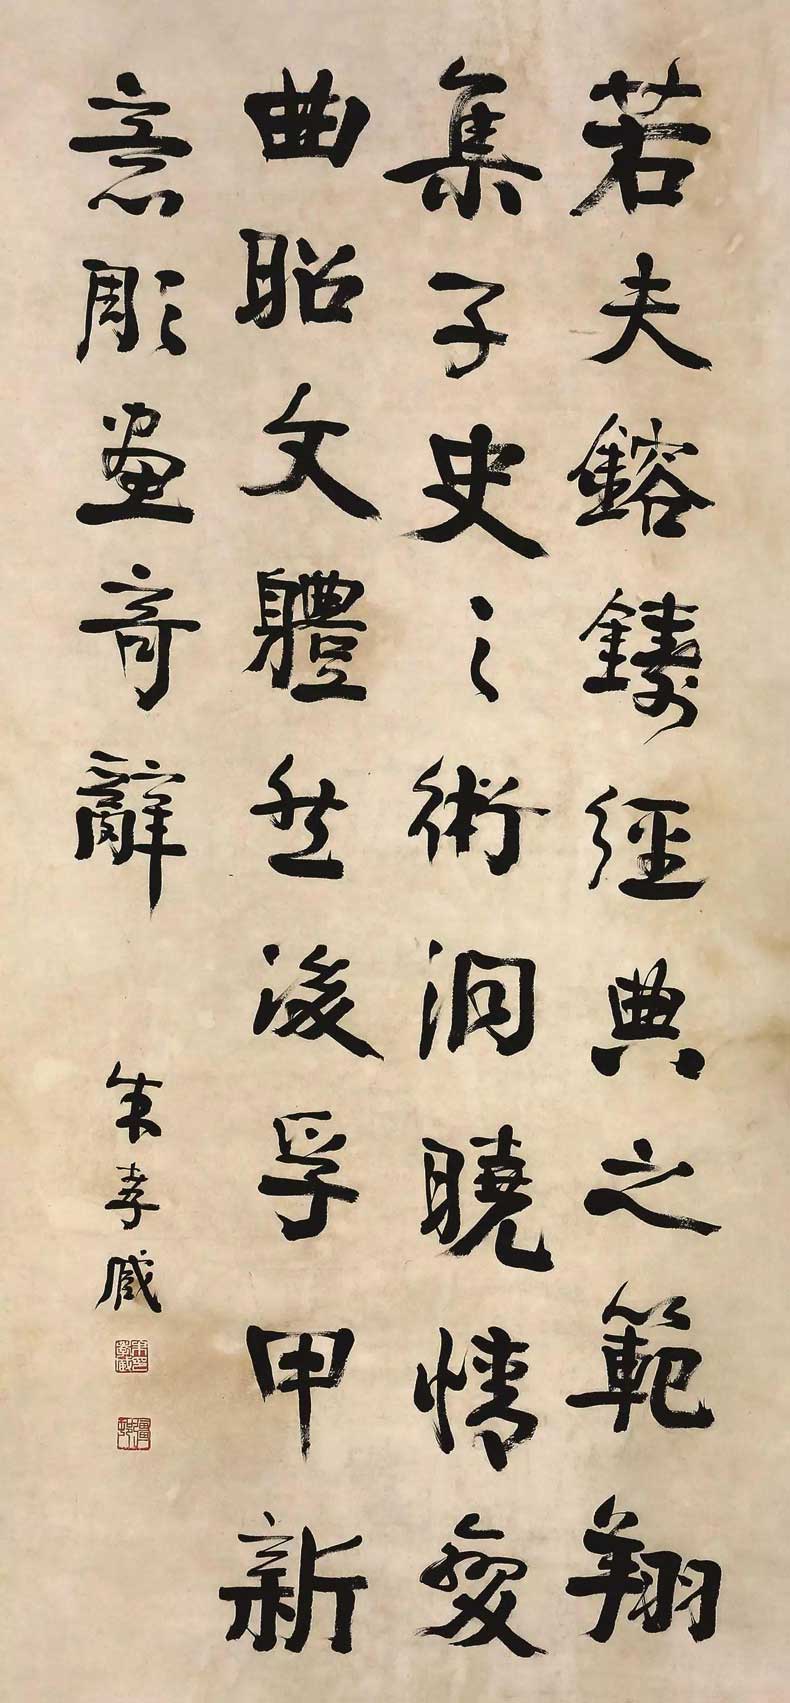 若夫鎔鑄經典之範翔
集子史之術洞曉情變
曲昭文軆然後孚甲新
意彫畫奇辭
朱孝臧